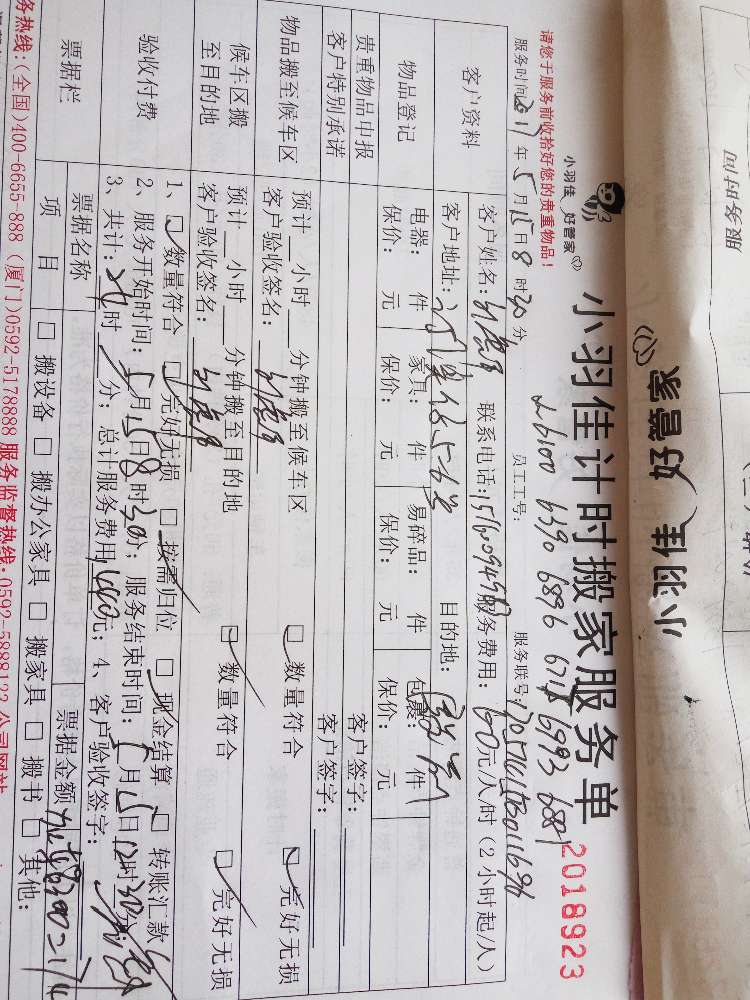 服务时间
小羽佳 好管家
小羽佳计时搬家服务单
2018923
小羽佳 好管家
请您于服务前收拾好您的贵重物品！
26100 6390 6896
员工工号：
服务联号：
服务时间 2017年5月15日8时30分
客户资料
客户姓名： 联系电话： 服务费用：60元/人/时（2小时起/人）
客户地址： 目的地：
物品登记
电器： 件 家具： 件 易碎品： 件 包裹： 件
保价： 元 保价： 元 保价： 元 保价： 元
贵重物品申报 客户签字：
客户特别承诺 客户签字：
物品搬至候车区
预计 小时 分钟搬至候车区 数量符合 完好无损
客户验收签名：
候车区搬至目的地
预计 小时 分钟搬至目的地 数量符合 完好无损
客户验收签名：
验收付费
1、 数量符合 完好无损 按需归位 现金结算 转账汇款
2、服务开始时间：5月15日8时30分；服务结束时间：5月15日12时30分；
3、共计：24时 分；总计服务费用1440元；4、客户验收签字：
票据栏
票据名称 票据金额
项目 搬设备 搬办公家具 搬家具 搬书 其他：
务热线:(全国)400-6655-888 (厦门)0592-5178888 服务监督热线:0592-5888122 公司网站